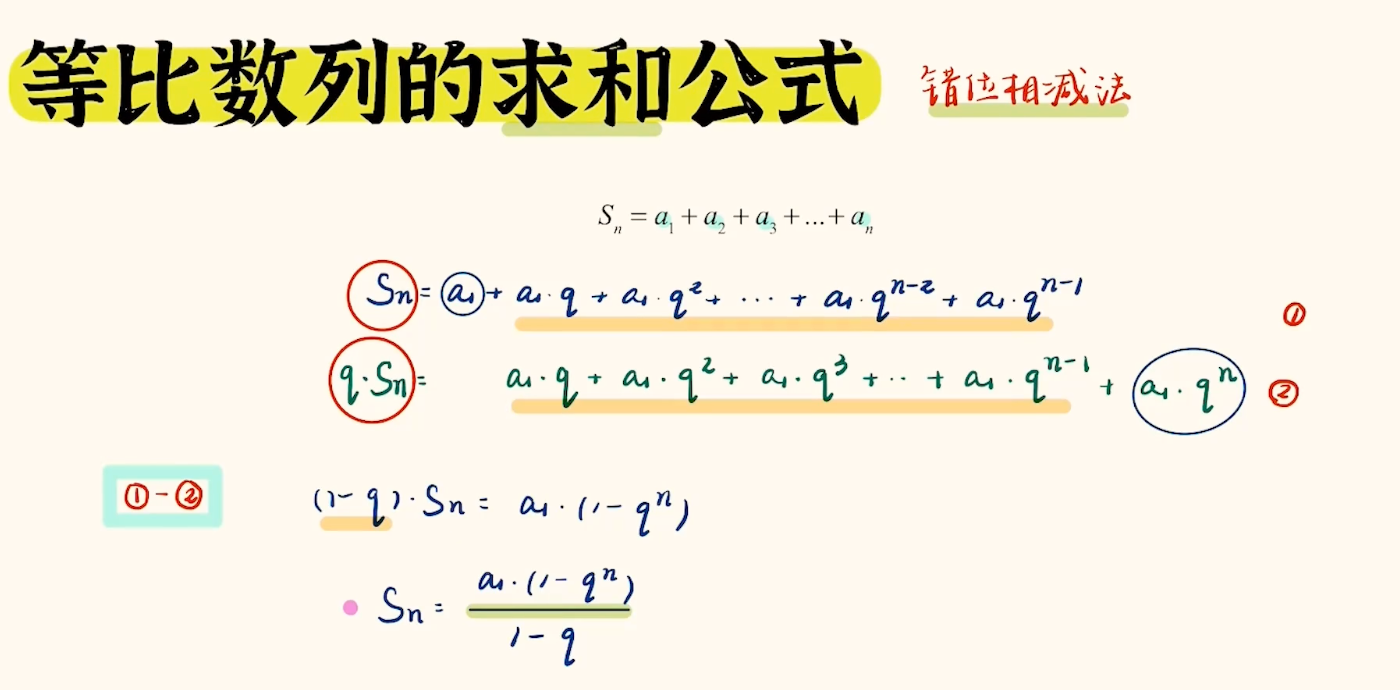 等比数列的求和公式 错位相减法
Sₙ = a₁ + a₂ + a₃ + ... + aₙ
Sₙ = a₁ + a₁·q + a₁·q² + ··· + a₁·qⁿ⁻² + a₁·qⁿ⁻¹ ①
q·Sₙ = a₁·q + a₁·q² + a₁·q³ + ·· + a₁·qⁿ⁻¹ + a₁·qⁿ ②
①-② (1-q)·Sₙ = a₁·(1-qⁿ)
Sₙ = a₁·(1-qⁿ)
1-q